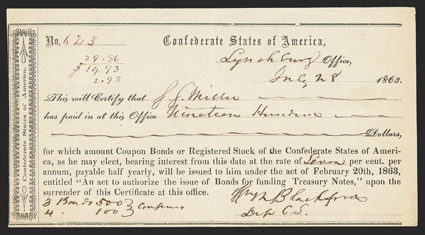 No. 623 Confederate States of America,
29.86
$ 14.93
2.93
Lynchburg Office,
July 28 1863.
This will Certify that J. J. Miller
has paid in at this Office Nineteen Hundred
Dollars,
for which amount Coupon Bonds or Registered Stock of the Confederate States of Ameri-
ca, as he may elect, bearing interest from this date at the rate of Seven per cent. per
annum, payable half yearly, will be issued to him under the act of February 20th, 1863,
entitled "An act to authorize the issue of Bonds for funding Treasury Notes," upon the
surrender of this Certificate at this office.
3 Bonds 500
4 100 Coupons
Blackford
Dep C.S.
Confederate States of America.